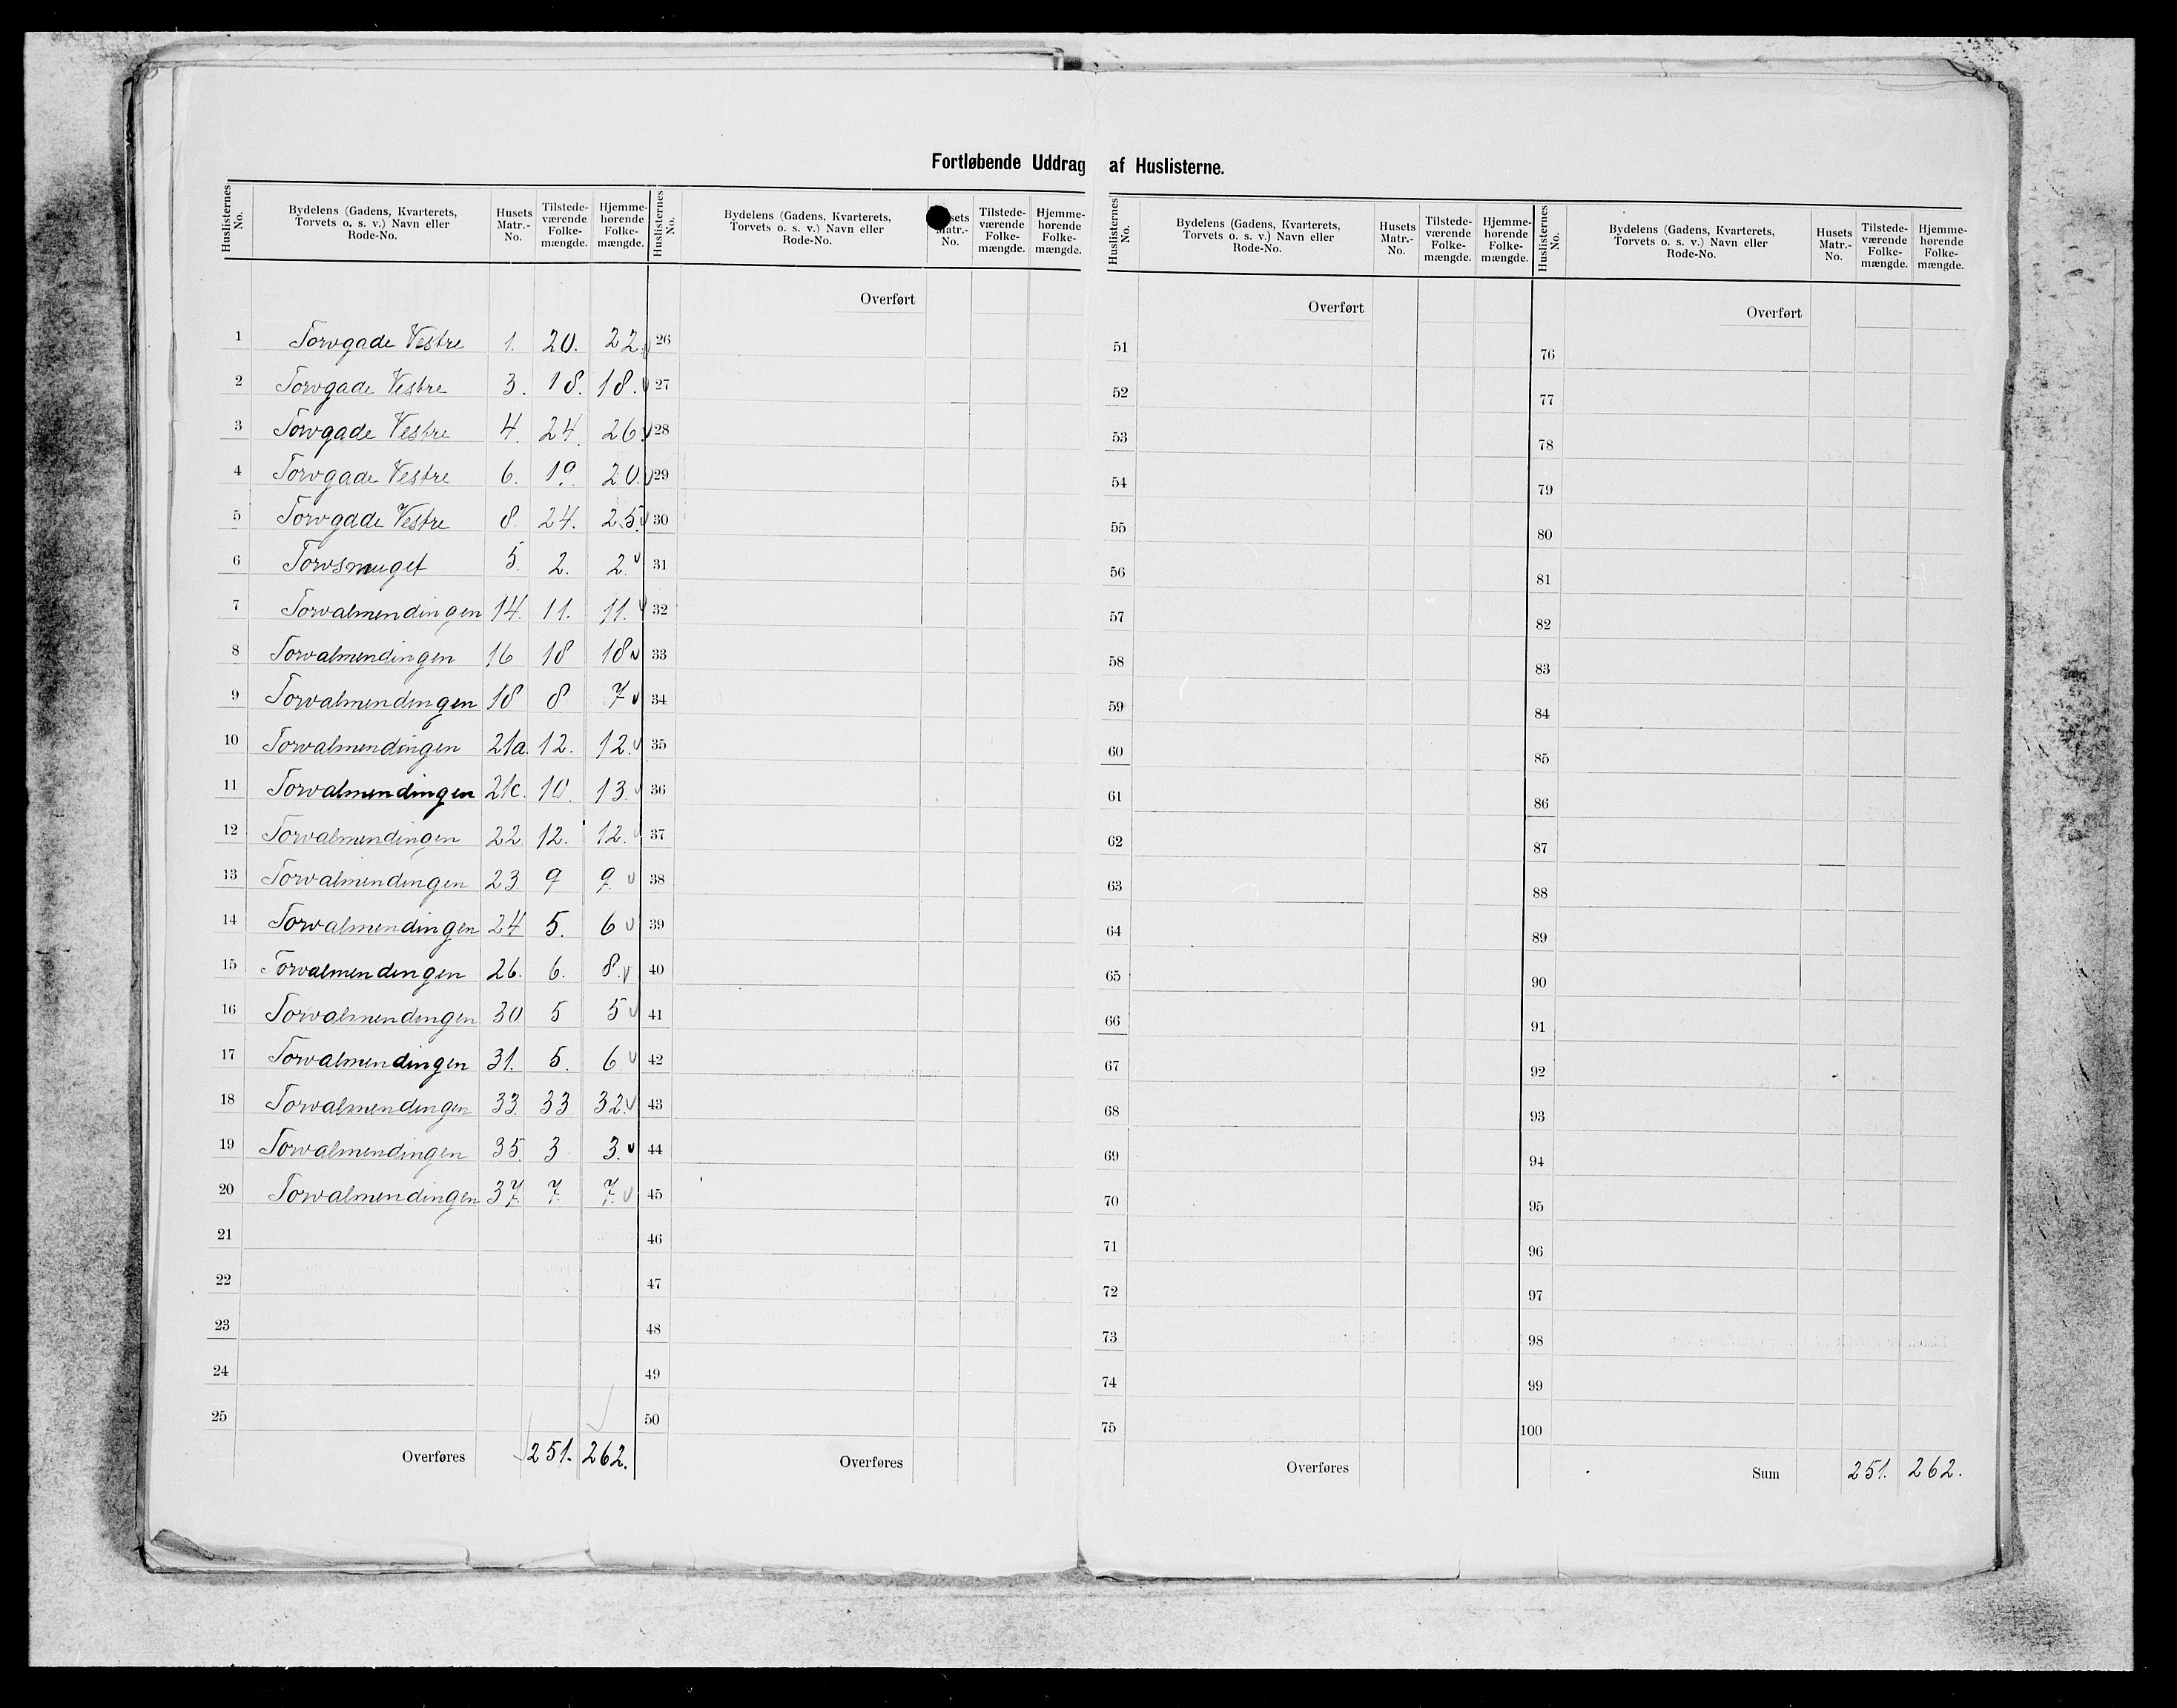 Fortløbende Uddrag af Huslisterne.
Huslisternes No. | Bydelens (Gadens, Kvarterets, Torvets o. s. v.) Navn eller Rode-No. | Husets Matr.-No. | Tilstedeværende Folkemængde. | Hjemmehørende Folkemængde.
1 Torvgade Vestre 1. 20. 22.
2 Torvgade Vestre 3. 18. 18.
3 Torvgade Vestre 4. 24. 26.
4 Torvgade Vestre 6. 19. 20.
5 Torvgade Vestre 8. 24. 25.
6 Torvsmuget 5. 2. 2.
7 Torvalmendingen 14. 11. 11.
8 Torvalmendingen 16 18 18
9 Torvalmendingen 18 8 7
10 Torvalmendingen 21a. 12. 12.
11 Torvalmendingen 21c. 10. 13.
12 Torvalmendingen 22 12. 12.
13 Torvalmendingen 23. 9 9.
14 Torvalmendingen 24 5. 6
15 Torvalmendingen 26. 6. 8.
16 Torvalmendingen 30. 5 5
17 Torvalmendingen 31. 5. 6
18 Torvalmendingen 33. 33 32.
19 Torvalmendingen 35. 3 3.
20 Torvalmendingen 37. 7. 7.
21
22
23
24
25
Overføres 251. 262.
Huslisternes No. | Bydelens (Gadens, Kvarterets, Torvets o. s. v.) Navn eller Rode-No. | usets Matr.-No. | Tilstedeværende Folkemængde. | Hjemmehørende Folkemængde.
Overført
26
27
28
29
30
31
32
33
34
35
36
37
38
39
40
41
42
43
44
45
46
47
48
49
50
Overføres
Huslisternes No. | Bydelens (Gadens, Kvarterets, Torvets o. s. v.) Navn eller Rode-No. | Husets Matr.-No. | Tilstedeværende Folkemængde. | Hjemmehørende Folkemængde.
Overført
51
52
53
54
55
56
57
58
59
60
61
62
63
64
65
66
67
68
69
70
71
72
73
74
75
Overføres
Huslisternes No. | Bydelens (Gadens, Kvarterets, Torvets o. s. v.) Navn eller Rode-No. | Husets Matr.-No. | Tilstedeværende Folkemængde. | Hjemmehørende Folkemængde.
Overført
76
77
78
79
80
81
82
83
84
85
86
87
88
89
90
91
92
93
94
95
96
97
98
99
100
Sum 251. 262.